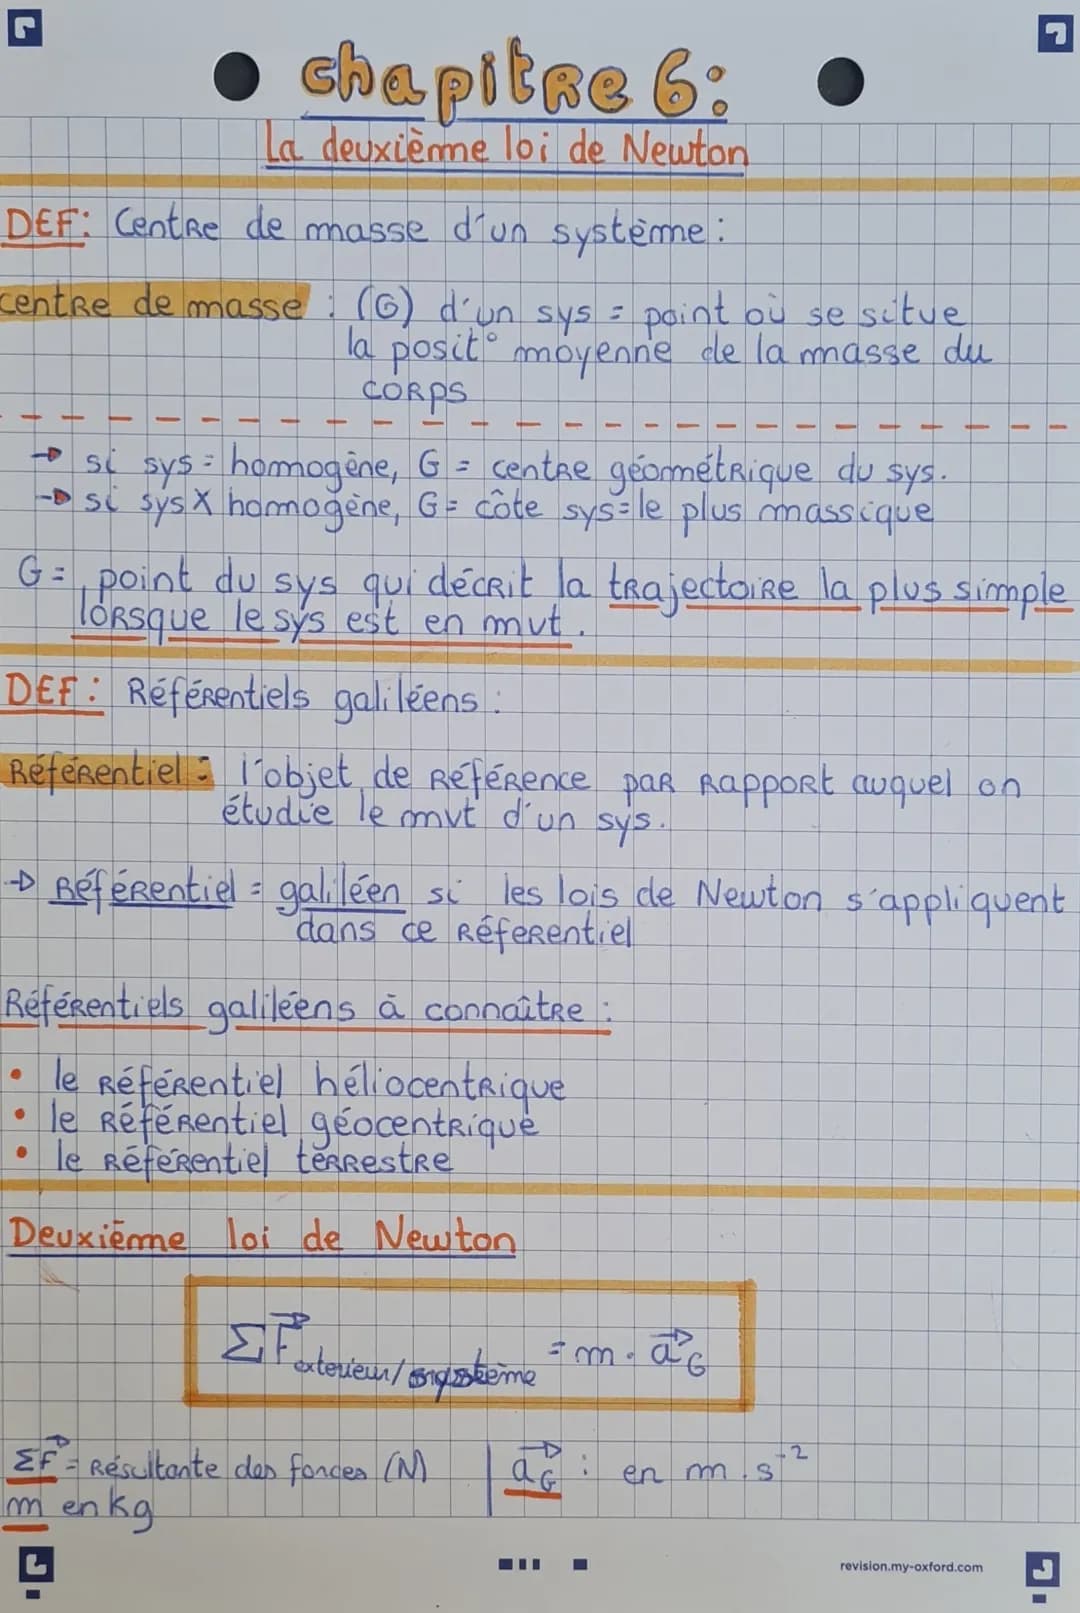 chapitre 6:
La deuxième loi de Newton
DEF: Centre de masse d'un système :
centre de masse : (G) d'un sys = point où se situe
la posit° moyenne de la masse du
corps
→ si sys = homogène, G = centre géométrique du sys.
→ si sys X homogène, G = côte sys = le plus massique
G = point du sys qui décrit la trajectoire la plus simple
lorsque le sys est en mvt.
DEF: Référentiels galiléens :
Référentiel = l'objet de référence par rapport auquel on
étudie le mvt d'un sys.
→ Référentiel = galiléen si les lois de Newton s'appliquent
dans ce référentiel
Référentiels galiléens à connaître :
• le référentiel héliocentrique
• le référentiel géocentrique
• le référentiel terrestre
Deuxième loi de Newton
ΣF⃗ exterieur/système = m . a⃗G
ΣF⃗ = Résultante des forces (N) | a⃗G : en m.s⁻²
m en kg
revision.my-oxford.com